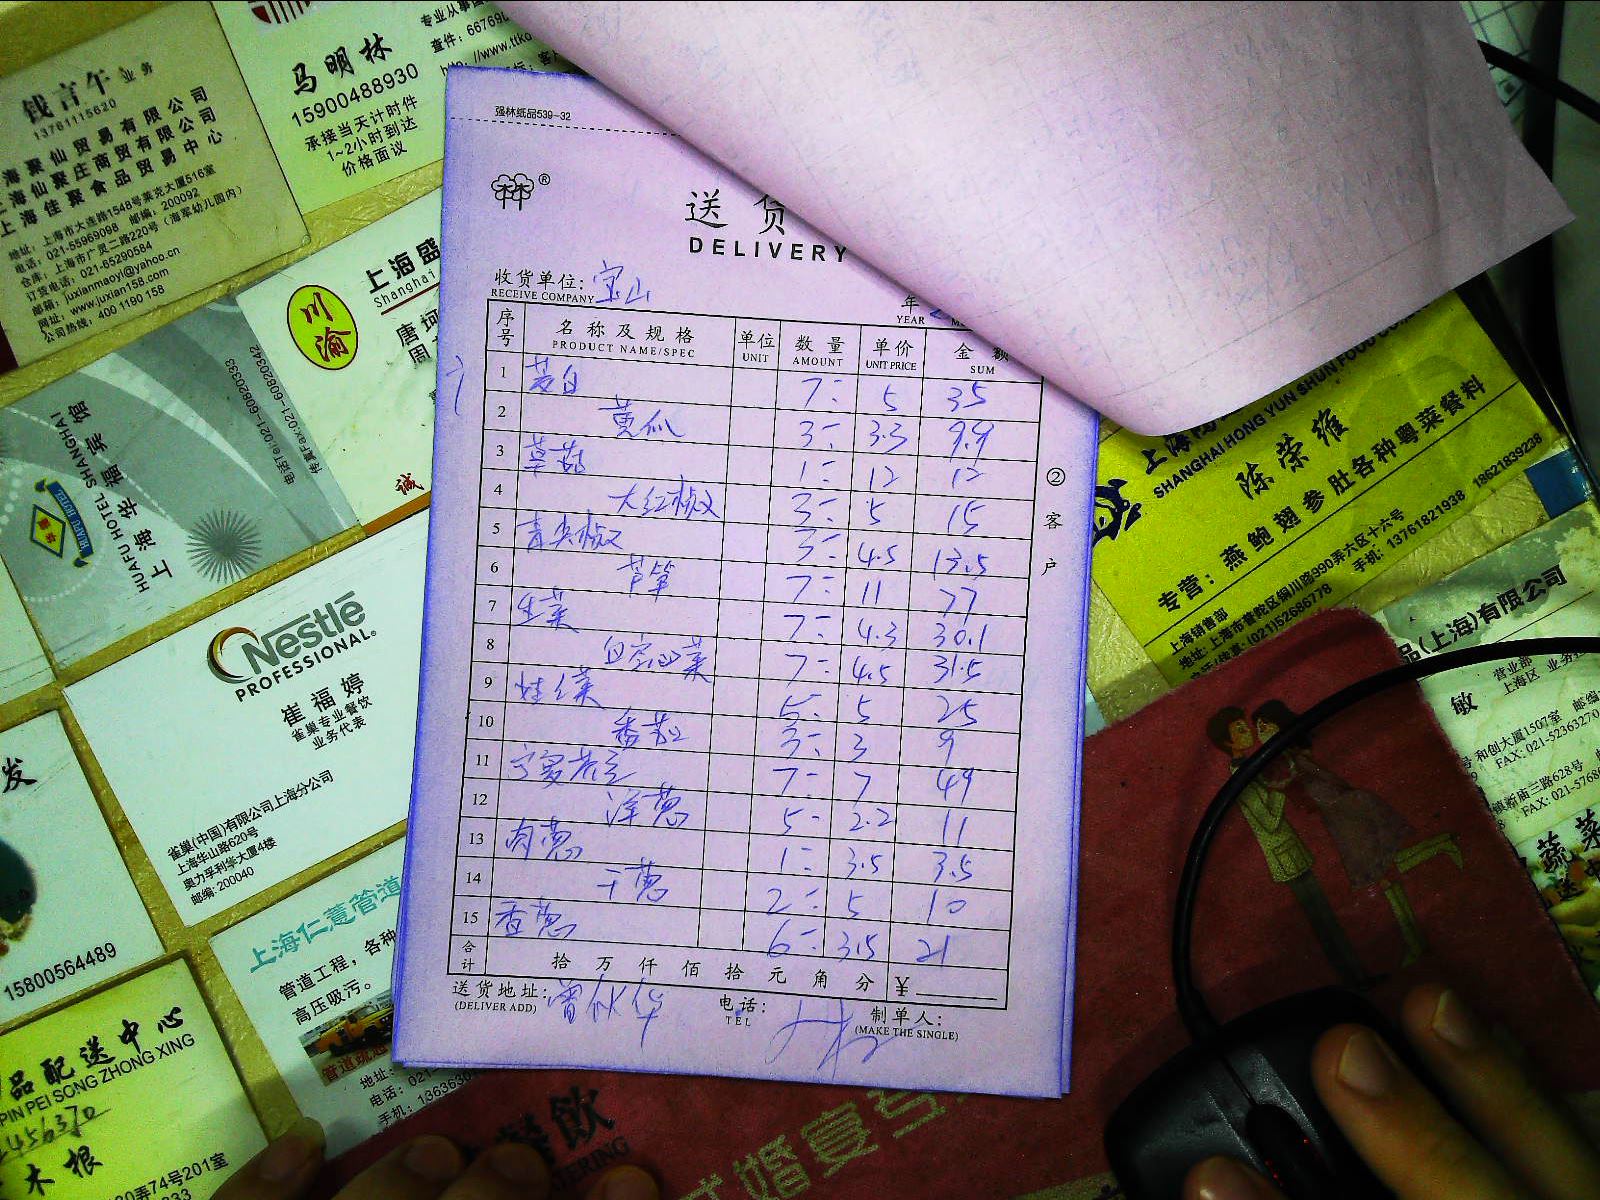 钱言午 业务
13761115620
海聚仙贸易有限公司
上海仙聚庄商贸有限公司
上海佳聚食品贸易中心
地址：上海市大连路1548号莱克大厦516室
电话：021-55969098 邮编：200092
仓库：上海市广灵二路220号（海军幼儿园内）
订货电话：021-65290584
邮箱：juxianmaoyi@yahoo.cn
网址：www.juxian158.com
公司热线：400 1190 158
马明林
15900488930
承接当天计时件
1~2小时到达
价格面议
专业从事
查件：66769
http://www.ttko
川渝
上海盛
Shanghai
诚
电话Tel:021-60820342
传真Fax:021-60820333
HUAFU HOTEL SHANGHAI
上海华福宾馆
Nestlé
PROFESSIONAL.
崔福婷
雀巢专业餐饮
业务代表
雀巢(中国)有限公司上海分公司
上海华山路620号
奥力孚利华大厦4楼
邮编: 200040
发
15800564489
上海仁薏管道
管道工程，各种
高压吸污。
管道疏
地址：
电话：021-
手机：136363
品配送中心
PIN PEI SONG ZHONG XING
木根
弄74号201室
强林纸品539-32
送货
DELIVERY
收货单位: 宝山
RECEIVE COMPANY
年
YEAR
序号 名称及规格 单位 数量 单价 金额
PRODUCT NAME/SPEC UNIT AMOUNT UNIT PRICE SUM
1 茭白 7 5 35
2 黄瓜 3 3.3 9.9
3 草菇 1 12 12
4 大红椒 3 5 15
5 青尖椒 3 4.5 13.5
6 芦笋 7 11 77
7 生菜 7 4.3 30.1
8 7 4.5 31.5
9 5 5 25
10 番茄 3 3 9
11 7 7 49
12 洋葱 5 2.2 11
13 肉葱 1 3.5 3.5
14 干葱 2 5 10
15 香葱 6 3.5 21
合计 拾 万 仟 佰 拾 元 角 分 ¥
送货地址:
(DELIVER ADD)
电话:
TEL
制单人:
(MAKE THE SINGLE)
② 客户
SHANGHAI HONG YUN SHUN FOOD
陈荣维
专营：燕鲍翅参肚各种粤菜餐料
上海销售部
地址: 上海市普陀区铜川路990弄六区十六号
(021)52686778 手机: 13761821938 18621839238
品(上海)有限公司
敏
营业部
上海区
和创大厦1507室 邮编
FAX: 021-52363270
镇新庙三路628号
FAX: 021-5768
蔬菜
送中
飲
ERING
婚宴专